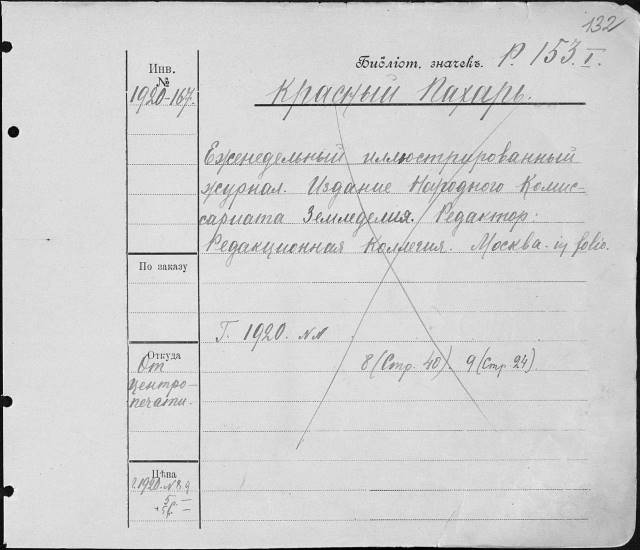 132
Библіот. значекъ. Р. 153. I.
Инв.
№
1920-167.
Красный Пахарь.
Еженедельный иллюстрированный
журнал. Издание Народного Комис-
сариата Земледелия. Редактор:
Редакционная Коллегия. Москва. in folio.
По заказу
Г. 1920. №№
8 (Стр. 40). 9 (Стр. 24).
Откуда
От
Центро-
печати.
Цѣна
г. 1920. № 8, 9